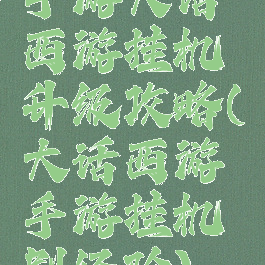 手游大话
西游挂机
升级攻略(
大话西游
手游挂机
刷经验)